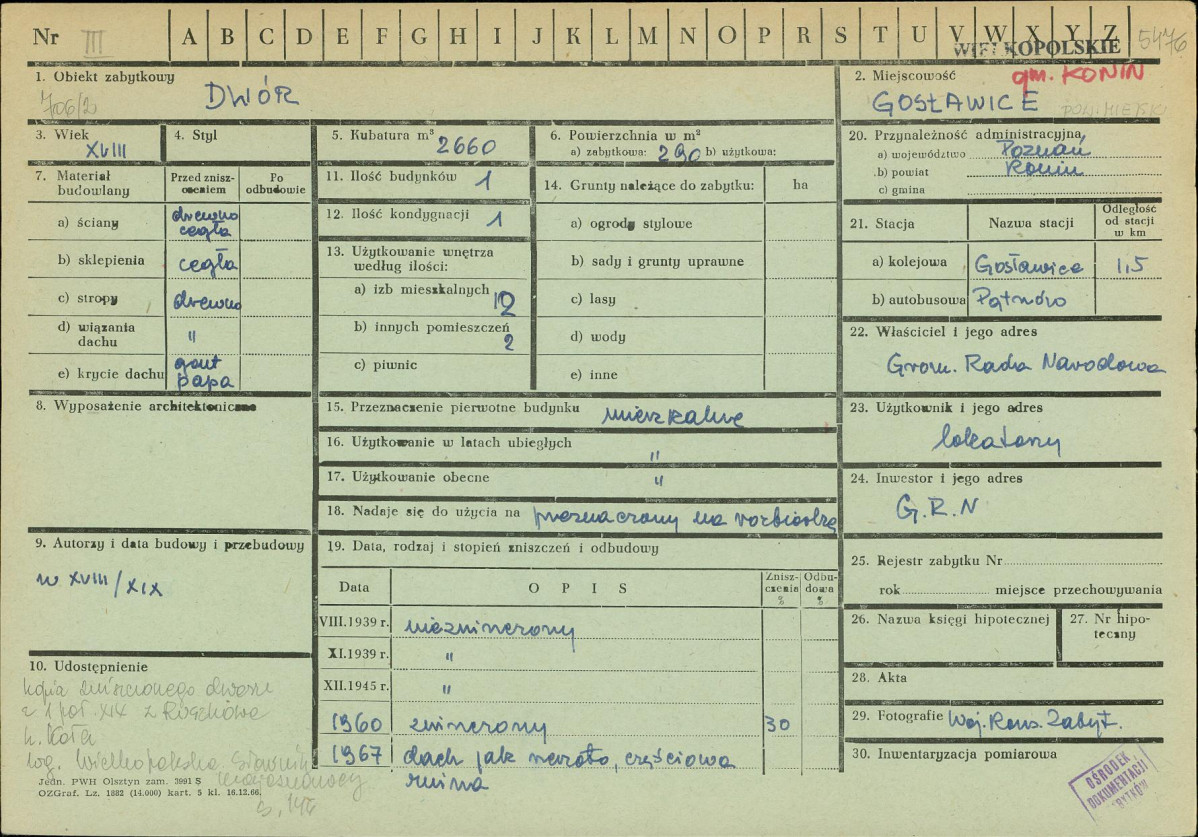 Nr III A B C D E F G H I J K L M N O P R S T U V W X Y Z 5476
WIELKOPOLSKIE
1. Obiekt zabytkowy
706/2
DWÓR
2. Miejscowość
gm. KONIN
GOSŁAWICE
POW. MIEJSKI
3. Wiek
XVIII
4. Styl
5. Kubatura m³ 2660
6. Powierzchnia w m²
a) zabytkowa: 290 b) użytkowa:
7. Materiał budowlany
Przed znisz-
czeniem
Po
odbudowie
a) ściany drewno
cegła
b) sklepienia cegła
c) stropy drewno
d) wiązania
dachu "
e) krycie dachu gont
papa
8. Wyposażenie architektoniczne
9. Autorzy i data budowy i przebudowy
w XVIII/XIX
10. Udostępnienie
kopia zniszczonego dworu
z 1 poł. XIX z
k. Koła
s. 146
Jedn. PWH Olsztyn zam. 3991 S
OZGraf. Lz. 1882 (14.000) kart. 5 kl. 16.12.66.
11. Ilość budynków 1
12. Ilość kondygnacji 1
13. Użytkowanie wnętrza
według ilości:
a) izb mieszkalnych 12
b) innych pomieszczeń
2
c) piwnic
14. Grunty należące do zabytku: ha
a) ogrody stylowe
b) sady i grunty uprawne
c) lasy
d) wody
e) inne
15. Przeznaczenie pierwotne budynku mieszkalne
16. Użytkowanie w latach ubiegłych "
17. Użytkowanie obecne "
18. Nadaje się do użycia na przeznaczony na rozbiórkę
19. Data, rodzaj i stopień zniszczeń i odbudowy
Data
O P I S
Znisz-
czenia
%
Odbu-
dowa
%
VIII.1939 r. niezniszczony
XI.1939 r. "
XII.1945 r. "
1960 zniszczony 30
1967 dach jak rzeszoto, częściowa
ruina
20. Przynależność administracyjna
a) województwo Poznań
b) powiat Konin
c) gmina
21. Stacja
Nazwa stacji
Odległość
od stacji
w km
a) kolejowa Gosławice 1,5
b) autobusowa Pątnów
22. Właściciel i jego adres
Grom. Rada Narodowa
23. Użytkownik i jego adres
lokatorzy
24. Inwestor i jego adres
G.R.N
25. Rejestr zabytku Nr
rok miejsce przechowywania
26. Nazwa księgi hipotecznej
27. Nr hipo-
teczny
28. Akta
29. Fotografie Woj. Kons. Zabyt.
30. Inwentaryzacja pomiarowa
OŚRODEK
DOKUMENTACJI
ZABYTKÓW